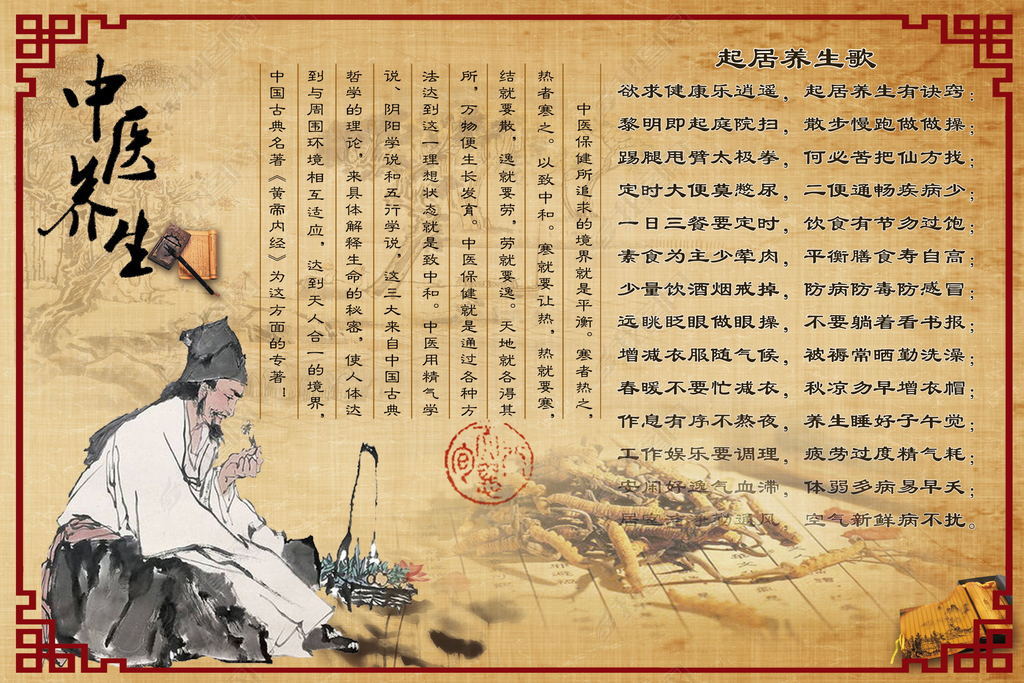 中医养生
中医保健所追求的境界就是平衡。寒者热之，
热者寒之。以致中和。寒就要让热，热就要寒，
结就要散，逸就要劳，劳就要逸。天地就各得其
所，万物便生长发育。中医保健就是通过各种方
法达到这一理想状态就是致中和。中医用精气学
说、阴阳学说和五行学说，这三大来自中国古典
哲学的理论，来具体解释生命的秘密，使人体达
到与周围环境相互适应，达到天人合一的境界，
中国古典名著《黄帝内经》为这方面的专著！
起居养生歌
欲求健康乐逍遥，起居养生有诀窍；
黎明即起庭院扫，散步慢跑做做操；
踢腿甩臂太极拳，何必苦把仙方找；
定时大便莫憋尿，二便通畅疾病少；
一日三餐要定时，饮食有节勿过饱；
素食为主少荤肉，平衡膳食寿自高；
少量饮酒烟戒掉，防病防毒防感冒；
远眺眨眼做眼操，不要躺着看书报；
增减衣服随气候，被褥常晒勤洗澡；
春暖不要忙减衣，秋凉勿早增衣帽；
作息有序不熬夜，养生睡好子午觉；
工作娱乐要调理，疲劳过度精气耗；
安闲好逸气血滞，体弱多病易早夭；
居室 通风，空气新鲜病不扰。